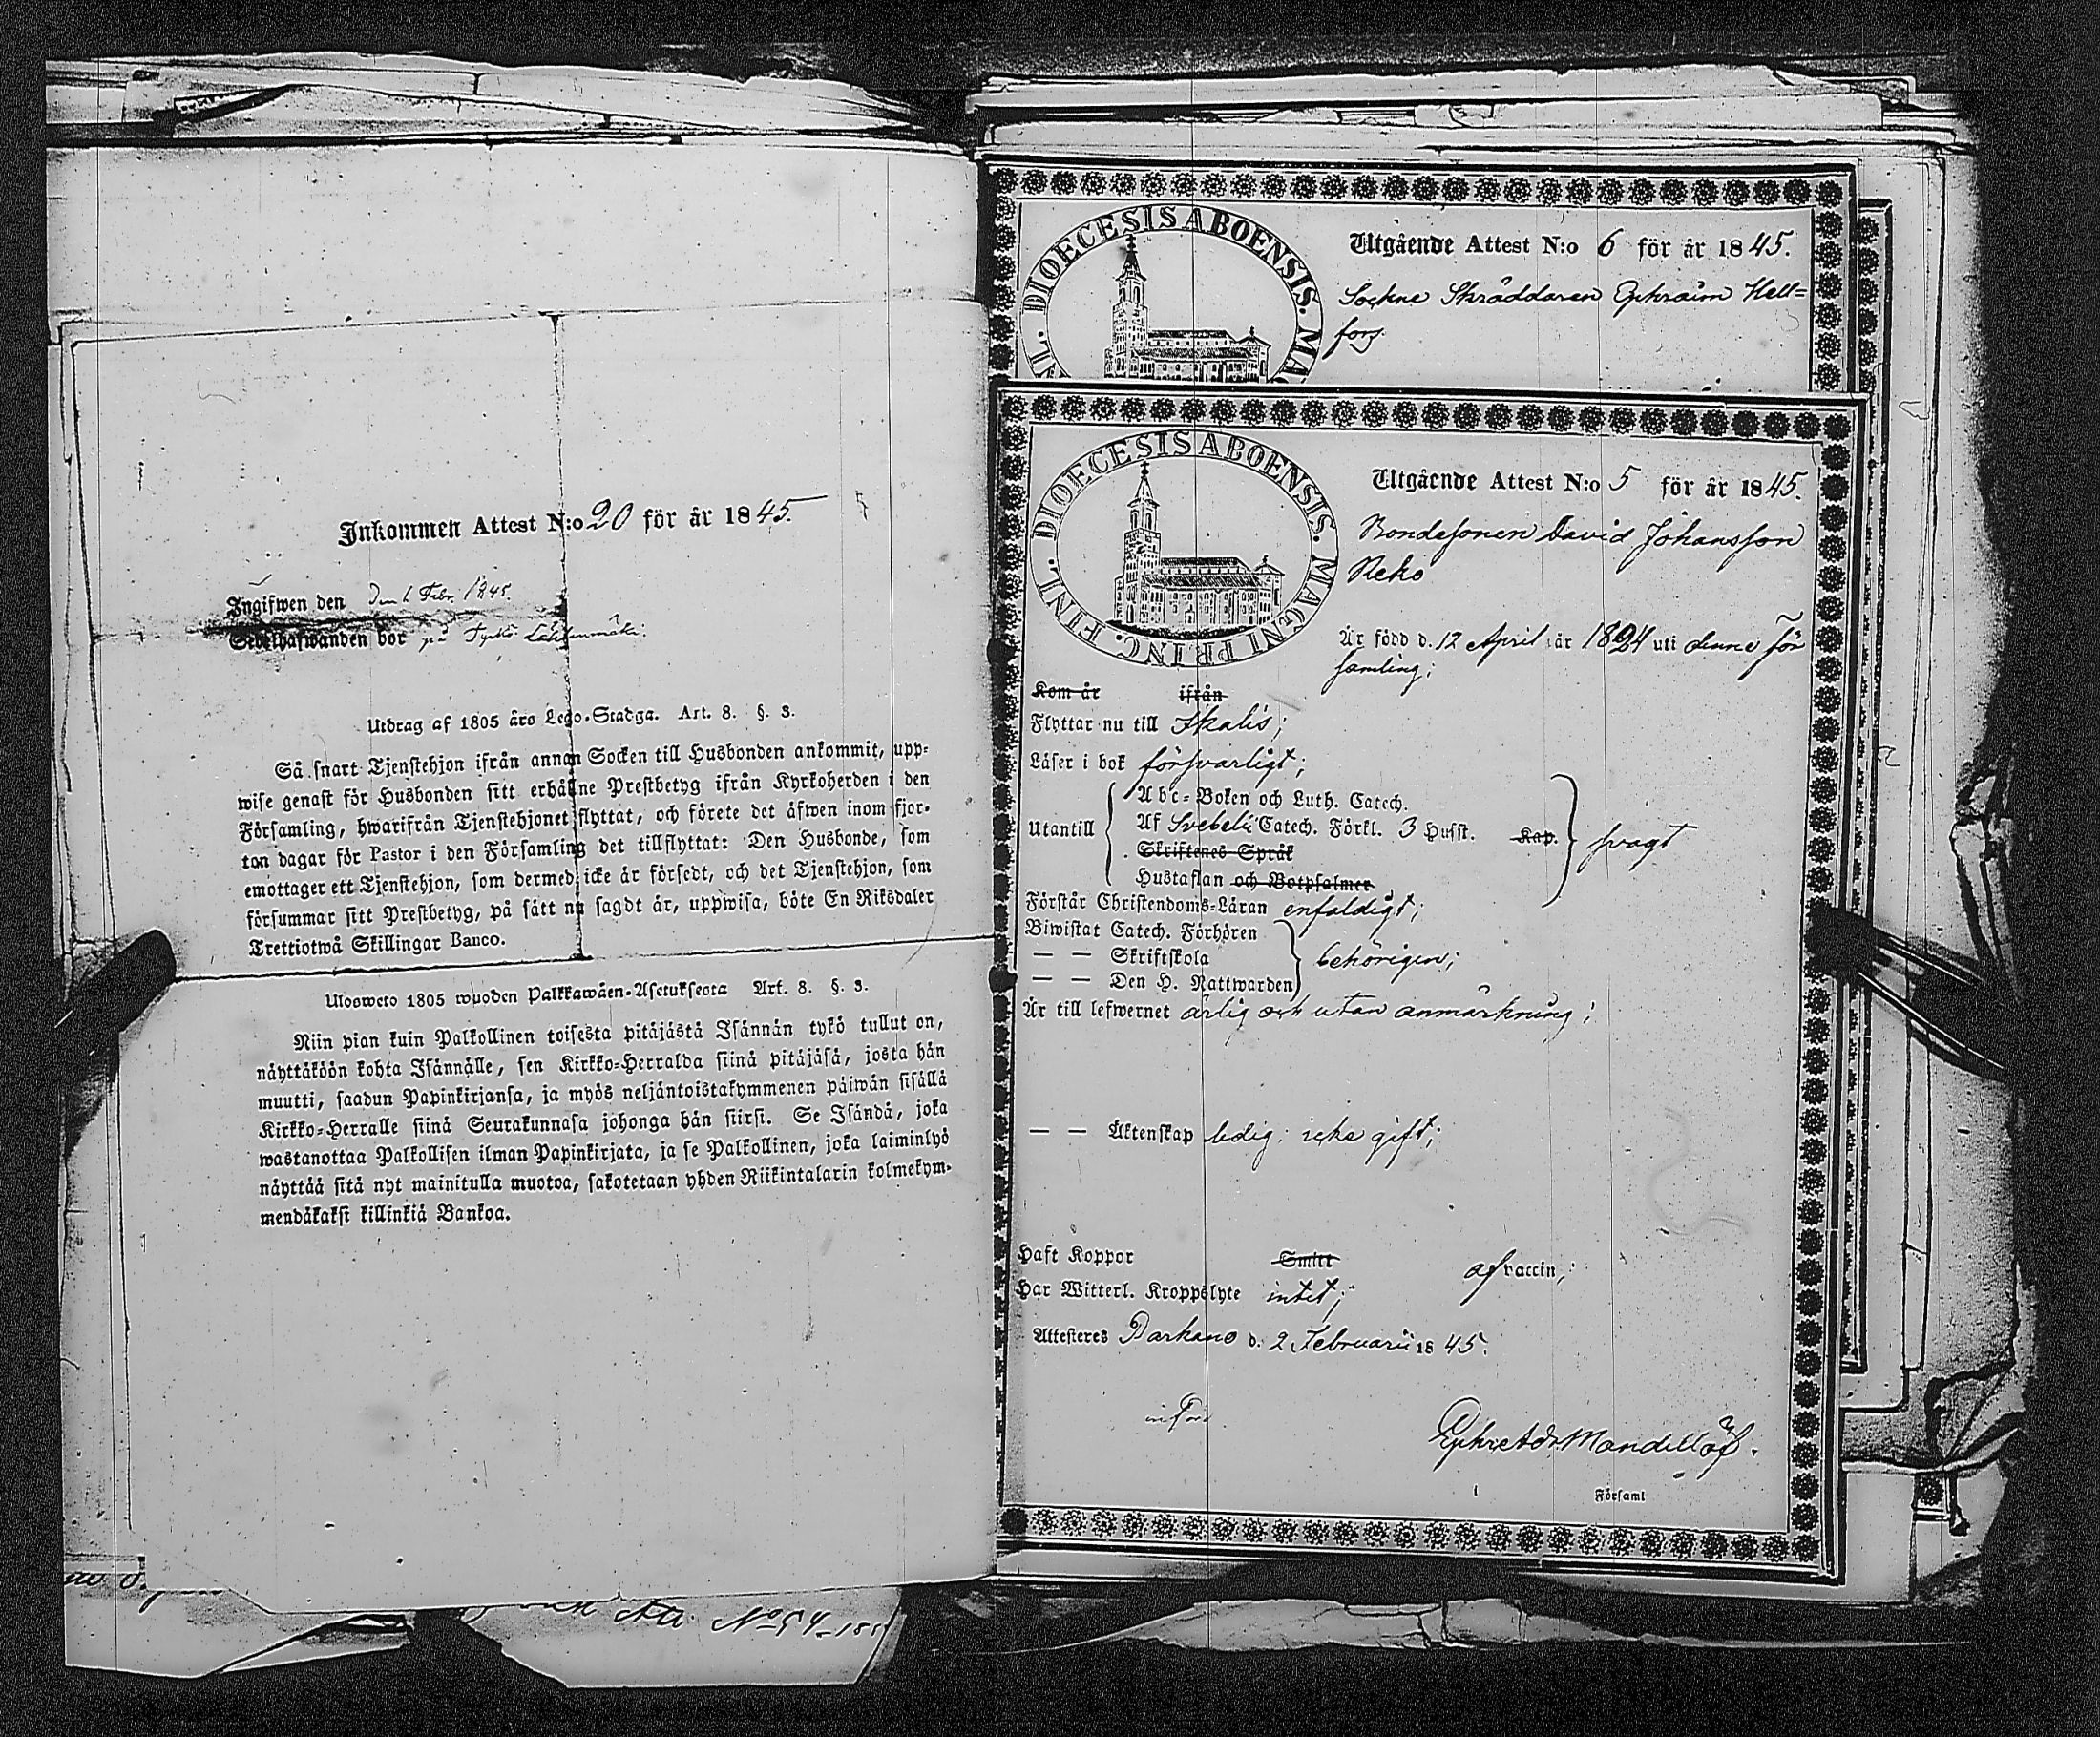 Inkommen Attest N:o 20 för år 1845.
Ingifwen den Den 1 Febr. 1845.
Sedelhafwanden bor på Tyrkö Lähteenmäki.
Utdrag af 1805 års Lego-Stadga. Art. 8. §. 3.
Så snart Tjenstehjon ifrån annan Socken till Husbonden ankommit, upp-
wise genast för Husbonden sitt erhållne Prestbetyg ifrån Kyrkoherden i den
Församling, hwarifrån Tjenstehjonet flyttat, och förete det äfwen inom fjor-
ton dagar för Pastor i den Församling det tillflyttat: Den Husbonde, som
emottager ett Tjenstehjon, som dermed icke är försedt, och det Tjenstehjon, som
försummar sitt Prestbetyg, på sätt nu sagdt är, uppwisa, böte En Riksdaler
Trettiotwå Skillingar Banco.
Ulosweto 1805 wuoden Palkkawäen-Asetuksesta Art. 8. §. 3.
Niin pian kuin Palkollinen toisesta pitäjästä Isännän tykö tullut on,
näyttäköön kohta Isännälle, sen Kirkko-Herralda siinä pitäjäsä, josta hän
muutti, saadun Papinkirjansa, ja myös neljäntoistakymmenen päiwän sisällä
Kirkko-Herralle siinä Seurakunnasa johonga hän siirsi. Se Isändä, joka
wastanottaa Palkollisen ilman Papinkirjata, ja se Palkollinen, joka laiminlyö
näyttää sitä nyt mainitulla muotoa, sakotetaan yhden Riikintalarin kolmekym-
mendäkaksi killinkiä Bankoa.
Att. No 54 185
DIOECESIS ABOENSIS. MA
Utgående Attest N:o 6 för år 1845.
Sockne Skräddaren Ephraim Hell=
fors.
DIOECESIS ABOENSIS. MAGNI PRINC. FINL.
Utgående Attest N:o 5 för år 1845.
Bondesonen David Johansson
Neko
Är född d. 12 April år 1824 uti denna för
samling;
Kom år ifrån
Flyttar nu till Ikalis;
Läser i bok försvarligt;
Utantill
Abc-Boken och Luth. Catech.
Af Svebelii Catech. Förkl. 3 Husst. Kap.
Skriftenes Språk
Hustaflan och Botpsalmer
svagt
Förstår Christendoms-Läran enfaldigt;
Biwistat Catech. Förhören
— — Skriftskola
— — Den H. Nattwarden
behörigen;
Är till lefwernet ärlig och utan anmärkning;
— — Äktenskap ledig: icke gift;
Haft Koppor Smitt af vaccin;
Har Witterl. Kroppslyte intet;
Attesteras Parkano d. 2 Februarii 1845.
Mandellöf.
Församl